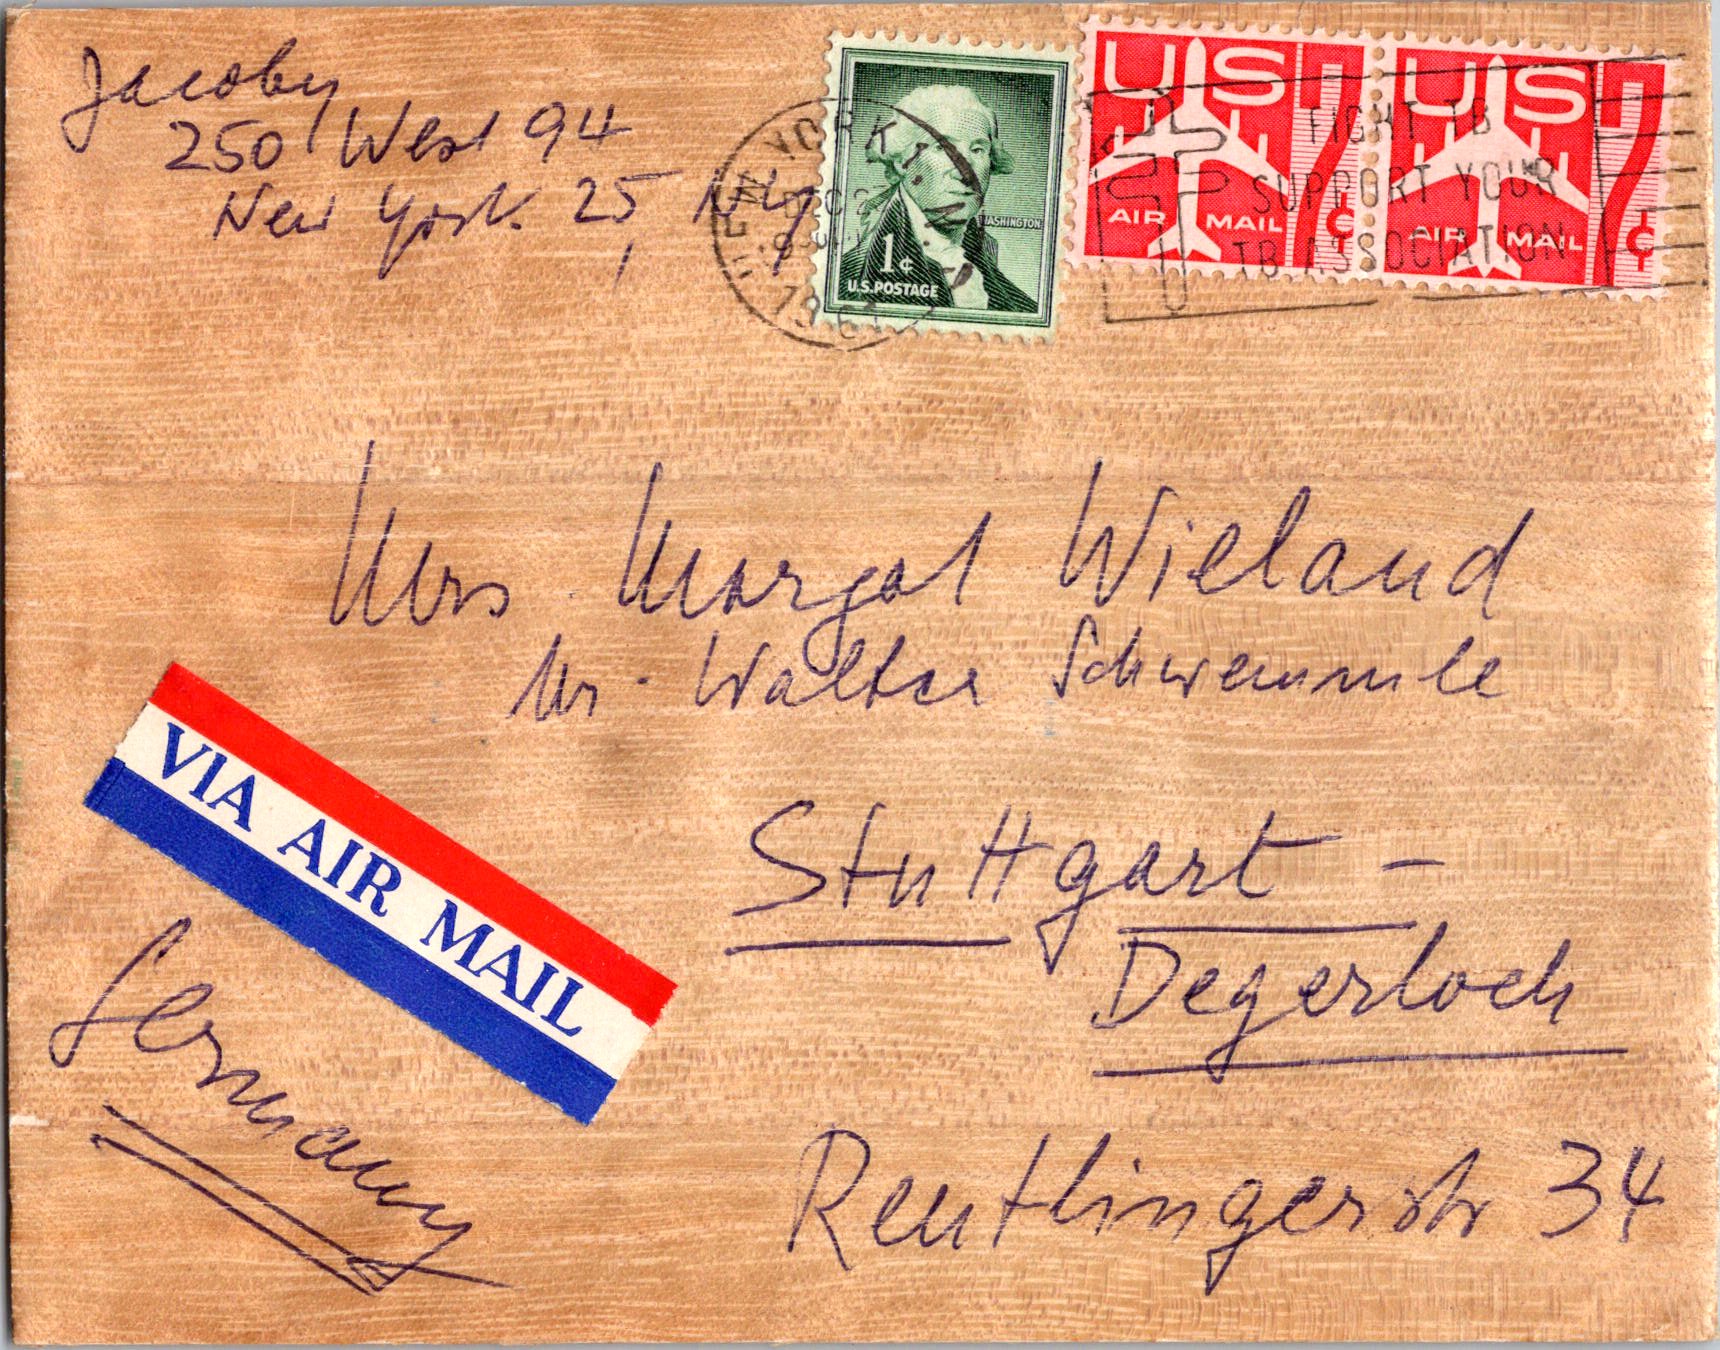 Jacoby
250 West 94
New York 25, NY
NEW YORK
DEC 2
196
WASHINGTON
1¢
U.S. POSTAGE
US
AIR MAIL
7¢
US
AIR MAIL
7¢
FIGHT TB
SUPPORT YOUR
TB ASSOCIATION
Mrs. Margot Wieland
Mr. Walter Schwemmle
Stuttgart -
Degerloch
Reutlingerstr 34
VIA AIR MAIL
Germany